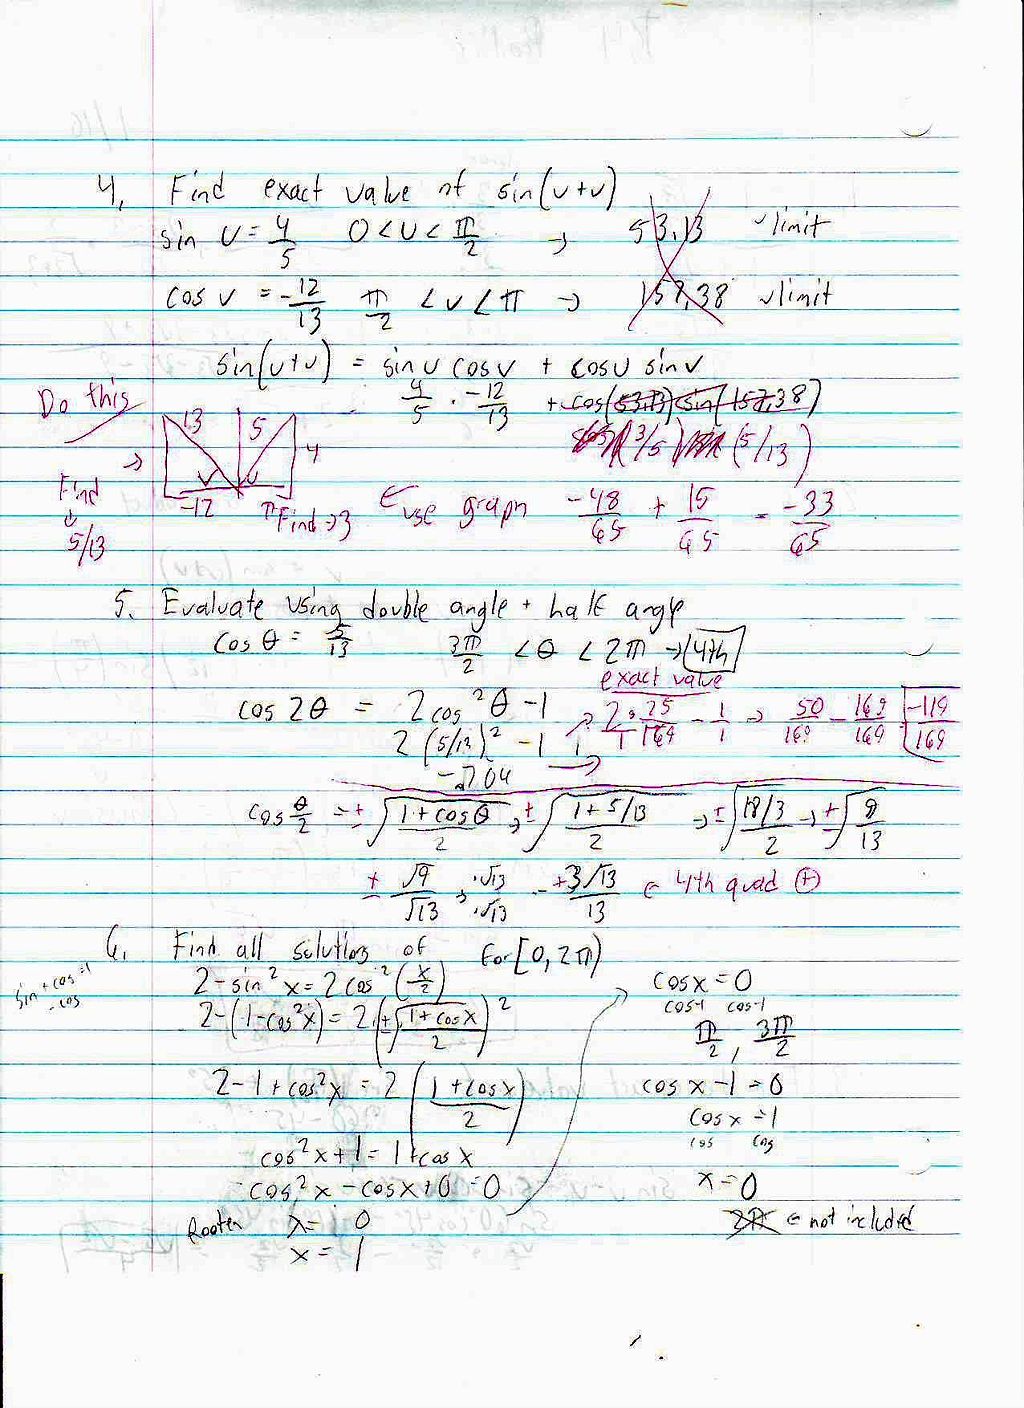 4. Find exact value of sin(u+v)
sin u = 4/5   0 < u < π/2 → 53.13 √limit
cos v = -12/13   π/2 < v < π → 157.38 √limit
sin(u+v) = sin u cos v + cos u sin v
4/5 · -12/13 + cos(53.13) sin(157.38)
Do this
(3/5) (5/13)
13 5 4
→ v u
-12
Find
↓
5/13
↑Find → 3
← use graph -48/65 + 15/65 = -33/65
5. Evaluate using double angle + half angle
cos θ = 5/13   3π/2 < θ < 2π → 4th
exact value
cos 2θ = 2cos²θ - 1
2(5/13)² - 1
-.704 →
2/1 · 25/169 - 1/1 → 50/169 - 169/169 -119/169
cos θ/2 = ± √(1+cosθ)/2 → ± √(1+5/13)/2 → ± √(18/3)/2 → ± √9/13
± √9/√13 → ·√13/·√13 = +3√13/13 ← 4th quad ⊕
6. Find all solutions of for [0, 2π)
sin + cos = 1
- cos
2 - sin²x = 2cos²(x/2)
2 - (1 - cos²x) = 2(± √(1+cosx)/2)²
2 - 1 + cos²x = 2(1+cosx/2)
cos²x + 1 = 1 + cosx
cos²x - cosx + 0 = 0
x = 0
x = 1
cosx = 0
cos-1 cos-1
π/2, 3π/2
cosx - 1 = 0
cosx = 1
cos cos
x = 0
2π ← not included